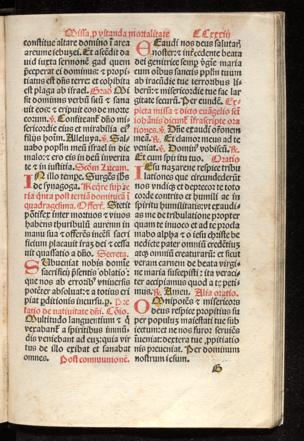 Missa p vitanda mortalitate CCxxxiii
constitue altare domino ī area
areume iebuzei. Et ascēdit da
uid iuxta sermonē gad quem
p̄ceperat ei dominus: 7 propi
tiatus est dn̄s terre: et cohibita
est plaga ab israel.
sit dominus verbū suū 7 sana
uit eos: 7 eripuit eos de morte
eorum. v̄. Confiteant̄ dn̄o mi
sericordie eius et mirabilia ei⁹
filijs hoīm. Alleluya. v̄. Sal
uabo populū meū israel in die
malo: 7 ero eis in deū in verita
te 7 in iustitia. Secūm Lucam.
IN illo tempe. Surgēs ihs̄
de synagoga.
quadragesima. Offert̄. Stetit
pōtifex inter mortuos 7 viuos
habens thuribulū aureum in
manu sua 7 offerēs incēsi sacri
ficium placauit irā dei: 7 cessa
uit quassatio a dn̄o. Secreta.
SUbueniat nobis domine
sacrificij p̄sentis oblatio:
que nos ab erroribꝰ vniuersis
potēter absoluat: 7 a totius eri
piat pditionis incursu. p. Pre
fatio de natiuitate dn̄i. Cōio.
Multitudo languentium 7 q̄
vexabant̄ a spiritibus immū
dis veniebant ad eū: quia vir
tus de illo exibat et sanabat
omnes. Post communionē.
EXaudi nos deus salutari
noster: 7 intercedente beata
dei genitrice semp v̄gine maria
cum oībus sanctis pp̄lm tuum
ab iracūdie tue terroribus li
bera: 7 misericordie tue fac lar
gitate securū. Per eundē. Ex
pleta missa 7 dicto euāgelio scī
iohānis dicunt̄ īfrascripte ora
tiones. v̄. Dn̄e exaudi orōnem
meā. R̄. Et clamor meus ad te
veniat. v̄. Dominꝰ vobiscū. R̄.
Et cum spiritu tuo. Oratio
IEsu nazarene respice tribu
lationes que circundederūt
nos vndiq; et deptecor te toto
corde contrito et humili ac in
spiritu humilitatis: vt exaudias
me de tribulatione propter
quam te inuoco et ad te procla
mabo alpha 7 o iesu christe be
nedicte pater omniū creditiuz
atq; omniū creaturarū: et sicut
veram carnem de beata virgi
ne maria suscepisti: ita veraci
ter accipiamus quod a te petim
us. R̄. Amen. Alia oratio.
OMnipotēs 7 misericors
deus respice propitius su
per populuz maiestati tue sub
iectum: et ne nos furor seruiēs
inueniat: dextera tue ꝓpitiatio
nis preueniat. Per dominum
nostrum iesum.